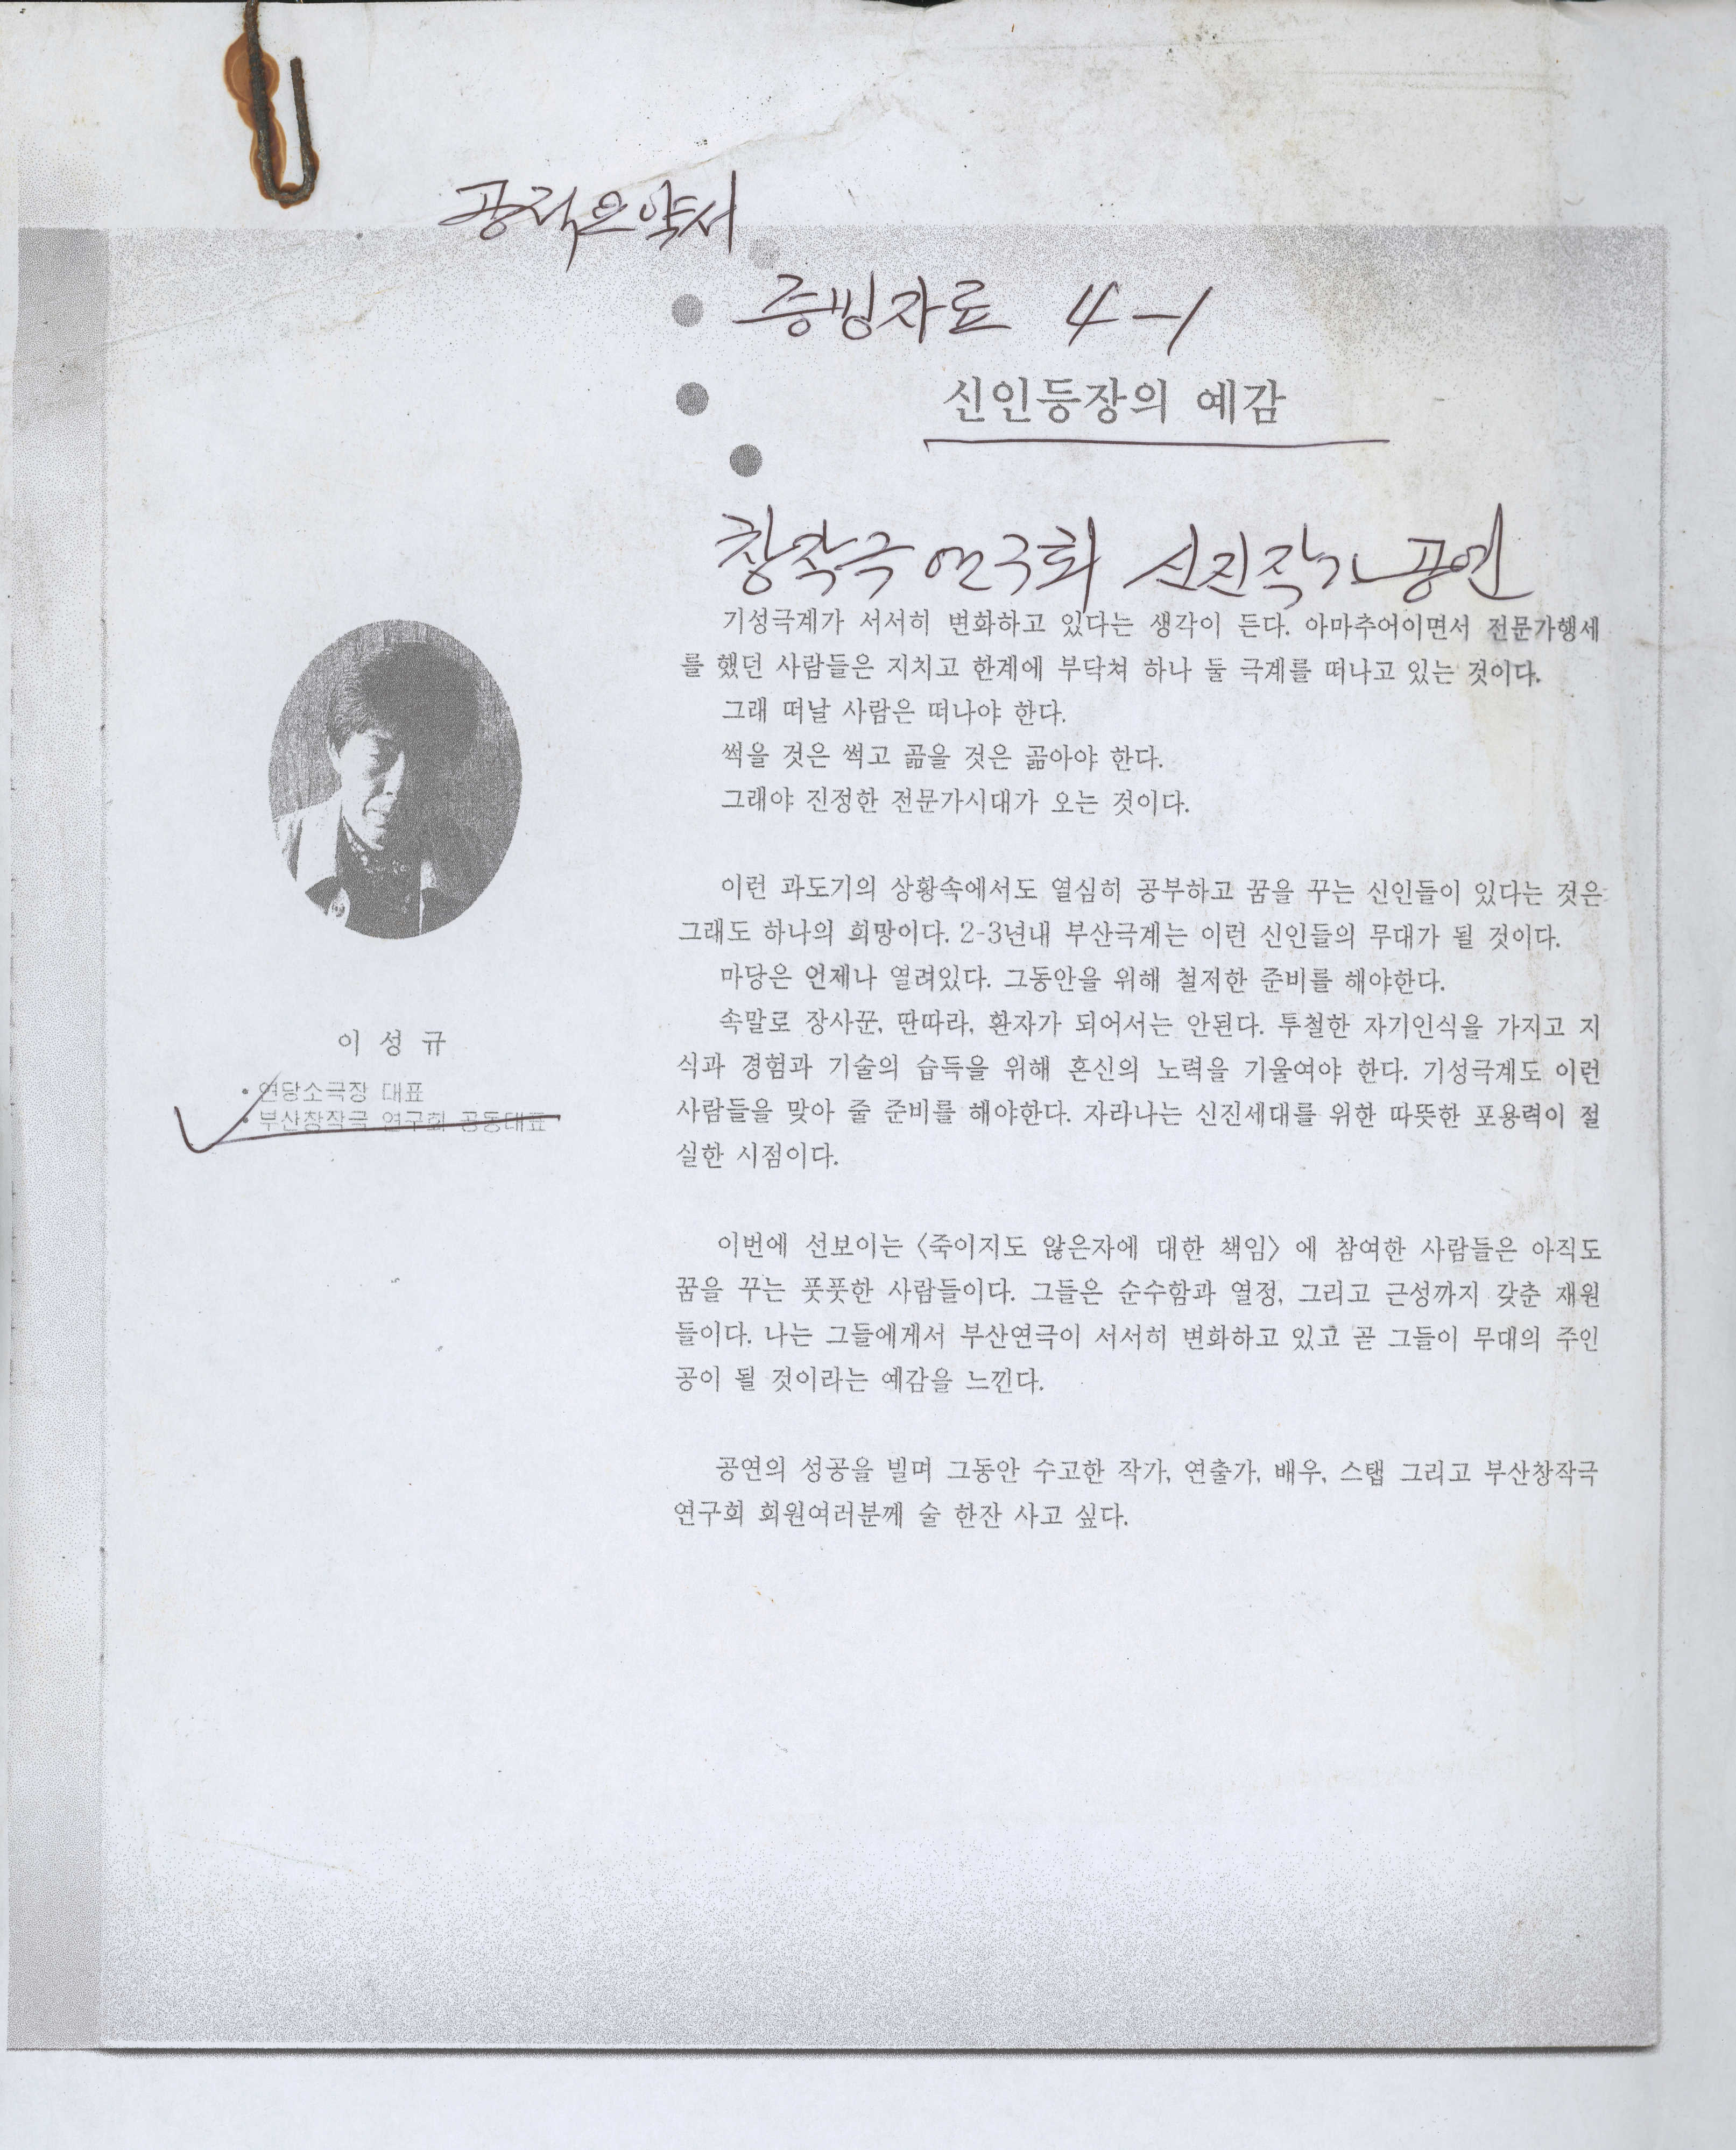 증빙자료 4-1
신인등장의 예감
창작극 연구회 신진작가 공연
기성극계가 서서히 변화하고 있다는 생각이 든다. 아마추어이면서 전문가행세
를 했던 사람들은 지치고 한계에 부닥쳐 하나 둘 극계를 떠나고 있는 것이다.
그래 떠날 사람은 떠나야 한다.
썩을 것은 썩고 곪을 것은 곪아야 한다.
그래야 진정한 전문가시대가 오는 것이다.
이런 과도기의 상황속에서도 열심히 공부하고 꿈을 꾸는 신인들이 있다는 것은
그래도 하나의 희망이다. 2-3년내 부산극계는 이런 신인들의 무대가 될 것이다.
마당은 언제나 열려있다. 그동안을 위해 철저한 준비를 해야한다.
속말로 장사꾼, 딴따라, 환자가 되어서는 안된다. 투철한 자기인식을 가지고 지
식과 경험과 기술의 습득을 위해 혼신의 노력을 기울여야 한다. 기성극계도 이런
사람들을 맞아 줄 준비를 해야한다. 자라나는 신진세대를 위한 따뜻한 포용력이 절
실한 시점이다.
이번에 선보이는 〈죽이지도 않은자에 대한 책임〉 에 참여한 사람들은 아직도
꿈을 꾸는 풋풋한 사람들이다. 그들은 순수함과 열정, 그리고 근성까지 갖춘 재원
들이다. 나는 그들에게서 부산연극이 서서히 변화하고 있고 곧 그들이 무대의 주인
공이 될 것이라는 예감을 느낀다.
공연의 성공을 빌며 그동안 수고한 작가, 연출가, 배우, 스탭 그리고 부산창작극
연구회 회원여러분께 술 한잔 사고 싶다.
이 성 규
• 연당소극장 대표
• 부산창작극 연구회 공동대표